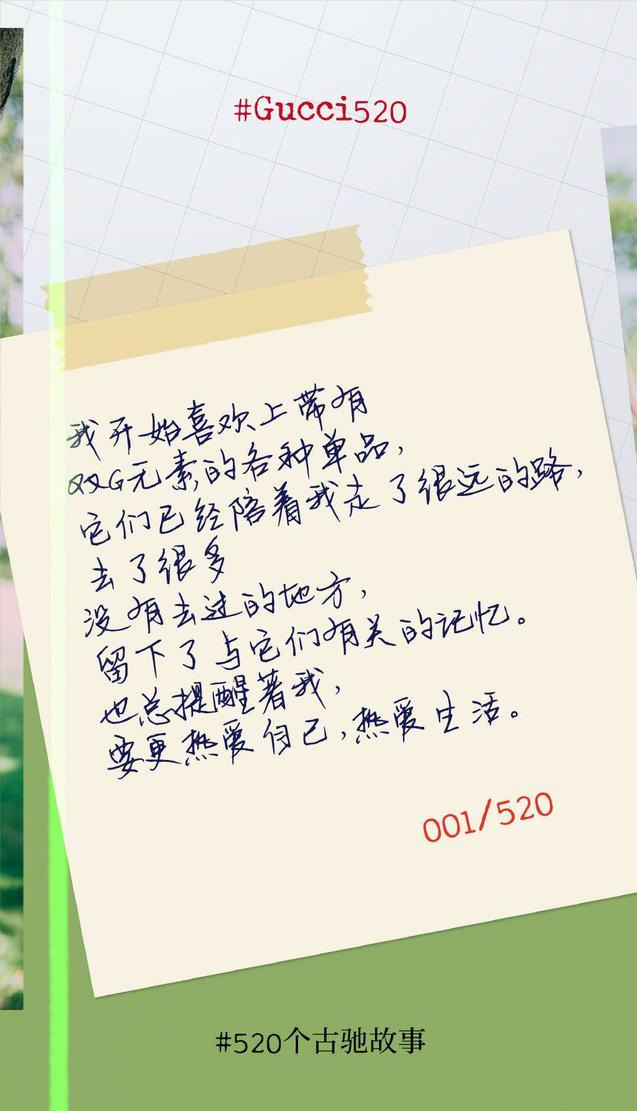 #Gucci520
我开始喜欢上带有
双G元素的各种单品，
它们已经陪着我走了很远的路，
去了很多
没有去过的地方，
留下了与它们有关的记忆。
也总提醒着我，
要更热爱自己，热爱生活。
001/520
#520个古驰故事